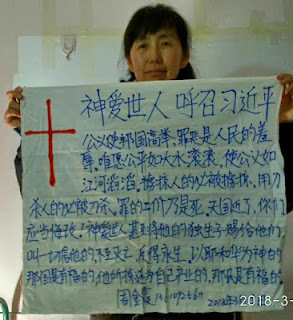 神爱世人 呼召习近平
公义使邦国高举,罪恶是人民的羞
辱,惟愿公平如大水滚滚,使公义如
江河滔滔,掳掠人的必被掳掠,用刀
杀人的必被刀杀,罪的工价乃是死,天国近了,你们
应当悔改!神爱世人甚至将他的独生子赐给他们,
叫一切信他的不至灭亡,反得永生,以耶和华为神的
那国是有福的,他所拣选为自己产业的,那民是有福的。
2018-3-